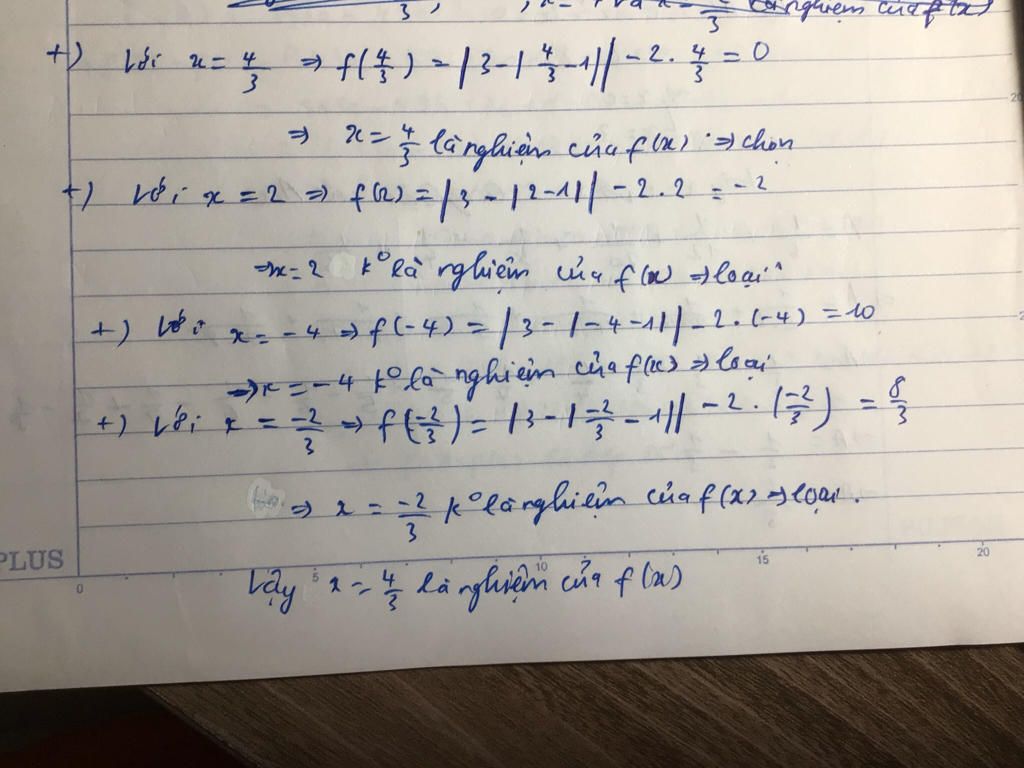 3 , x = là nghiệm của f(x)
+) Với x = 4/3 ⇒ f(4/3) = |3 - |4/3 - 1|| - 2. 4/3 = 0
⇒ x = 4/3 là nghiệm của f(x) ⇒ chọn
+) Với x = 2 ⇒ f(2) = |3 - |2 - 1|| - 2.2 = -2
⇒ x = 2 k° là nghiệm của f(x) ⇒ loại
+) Với x = -4 ⇒ f(-4) = |3 - |-4 - 1|| - 2.(-4) = 10
⇒ x = -4 k° là nghiệm của f(x) ⇒ loại
+) Với x = -2/3 ⇒ f(-2/3) = |3 - |-2/3 - 1|| - 2.(-2/3) = 8/3
⇒ x = -2/3 k° là nghiệm của f(x) ⇒ loại.
PLUS
0 5 10 15 20
Vậy x = 4/3 là nghiệm của f(x)